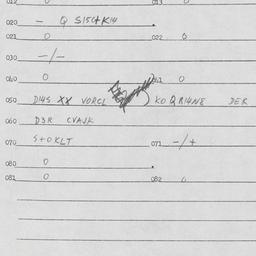 012 0 013 0
020 - Q S15C+K14 .
021 0 022 0
030 -/-
040 0 041 0
050 D14S XX VORCL ) KO Q R14NE DER
060 D3R CVAJK
070 S+OKLT 071 -/+
080 0 .
081 0 082 0